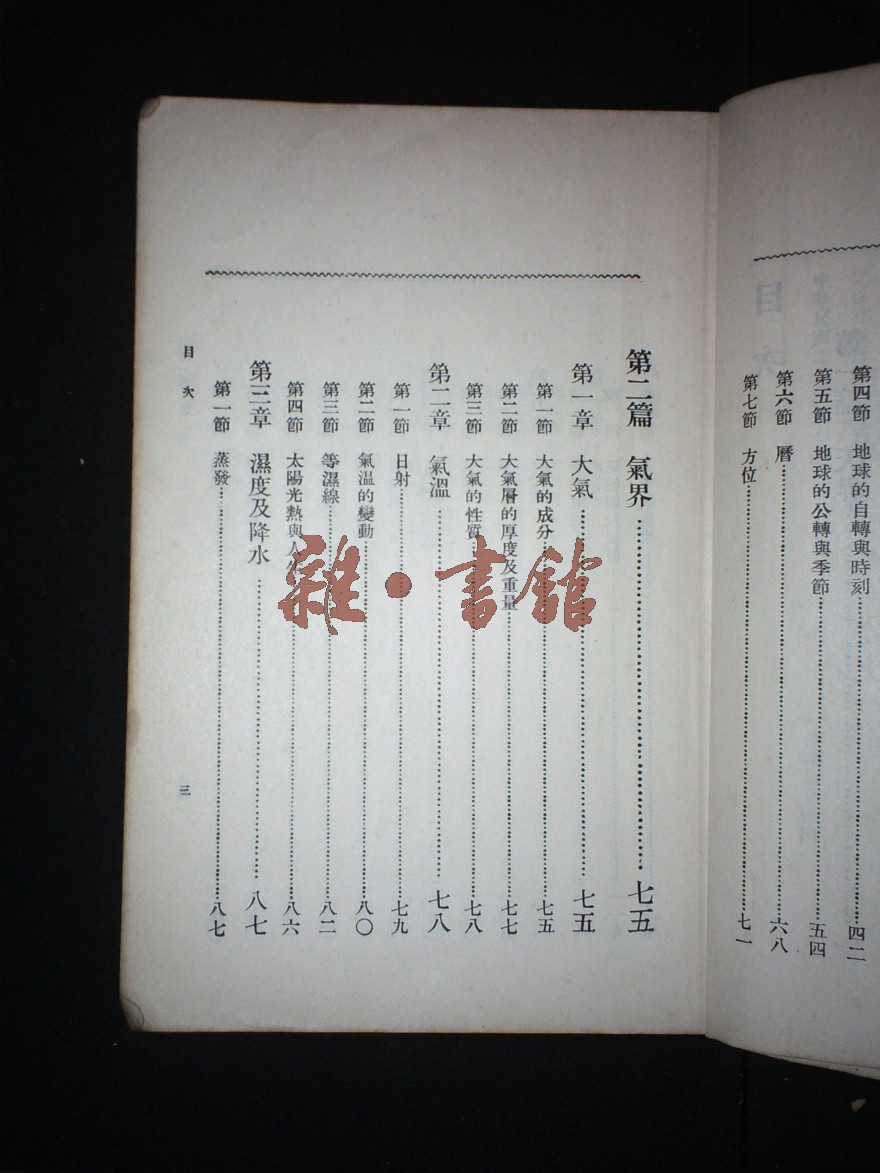 第四節 地球的自轉與時刻……四二
第五節 地球的公轉與季節……五四
第六節 曆……六八
第七節 方位……七一
目次
第二篇 氣界……七五
第一章 大氣……七五
第一節 大氣的成分……七五
第二節 大氣層的厚度及重量……七七
第三節 大氣的性質……七八
第二章 氣溫……七八
第一節 日射……七九
第二節 氣溫的變動……八〇
第三節 等濕線……八二
第四節 太陽光熱與人生……八六
第三章 濕度及降水……八七
第一節 蒸發……八七
目次
三
雜·書館